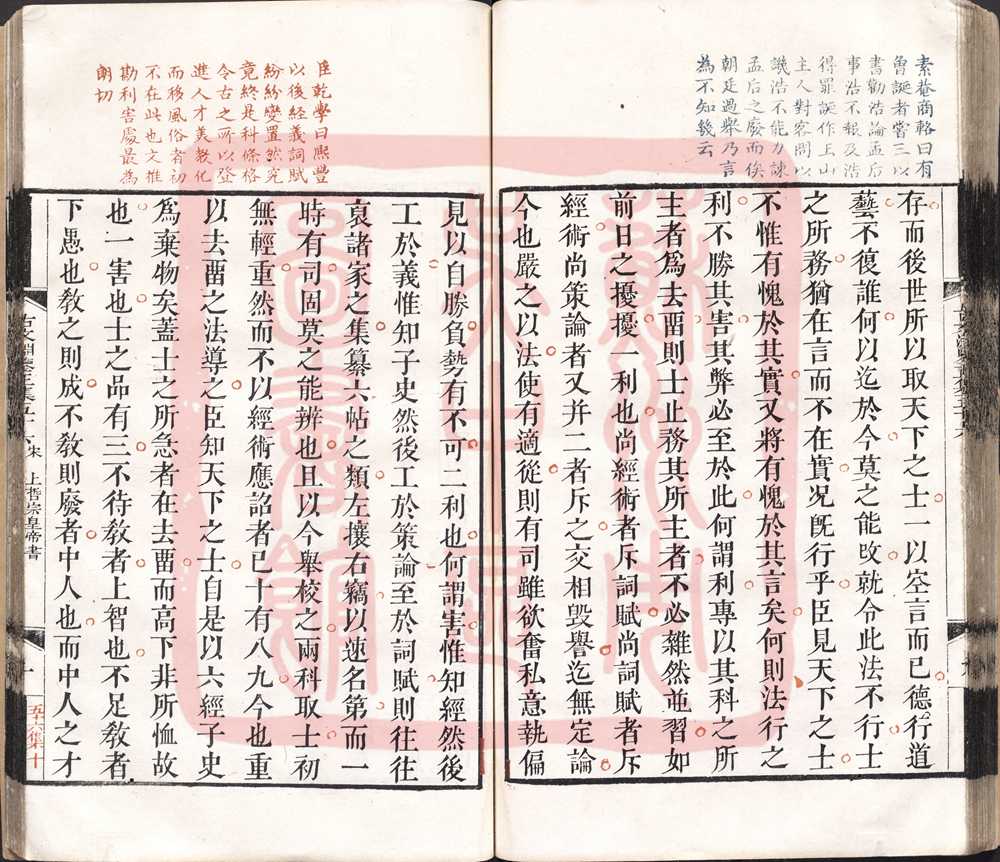 素菴商輅曰有
曾誕者嘗三以
書勸浩論孟后
事浩不報及浩
得罪誕作玉山
主人對客問以
譏浩不能力諫
孟后之廢而俟
朝廷過舉乃言
為不知幾云
存而後世所以取天下之士一以空言而已德行道
藝不復誰何以迄於今莫之能攺就令此法不行士
之所務猶在言而不在實况旣行乎臣見天下之士
不惟有愧於其實又將有愧於其言矣何則法行之
利不勝其害其弊必至於此何謂利專以其科之所
主者爲去畱則士止務其所主者不必雜然並習如
前日之擾擾一利也尚經術者斥詞賦尚詞賦者斥
經術尚策論者又并二者斥之交相毀譽迄無定論
今也嚴之以法使有適從則有司雖欲奮私意執偏
臣乾學曰熙豐
以後經義詞賦
紛紛變置然究
竟終是科條格
令古之所以登
進人才美教化
而移風俗者初
不在此也文推
勘利害處最為
朗切
見以自勝負勢有不可二利也何謂害惟知經然後
工於義惟知子史然後工於策論至於詞賦則往往
裒諸家之集纂六帖之類左攘右竊以速名第而一
時有司固莫之能辨也且以今舉校之兩科取士初
無輕重然而不以經術應詔者已十有八九今也重
以去畱之法導之臣知天下之士自是以六經子史
爲棄物矣蓋士之所急者在去畱而高下非所恤故
也一害也士之品有三不待敎者上智也不足敎者
下愚也敎之則成不敎則廢者中人也而中人之才
上哲宗皇帝書